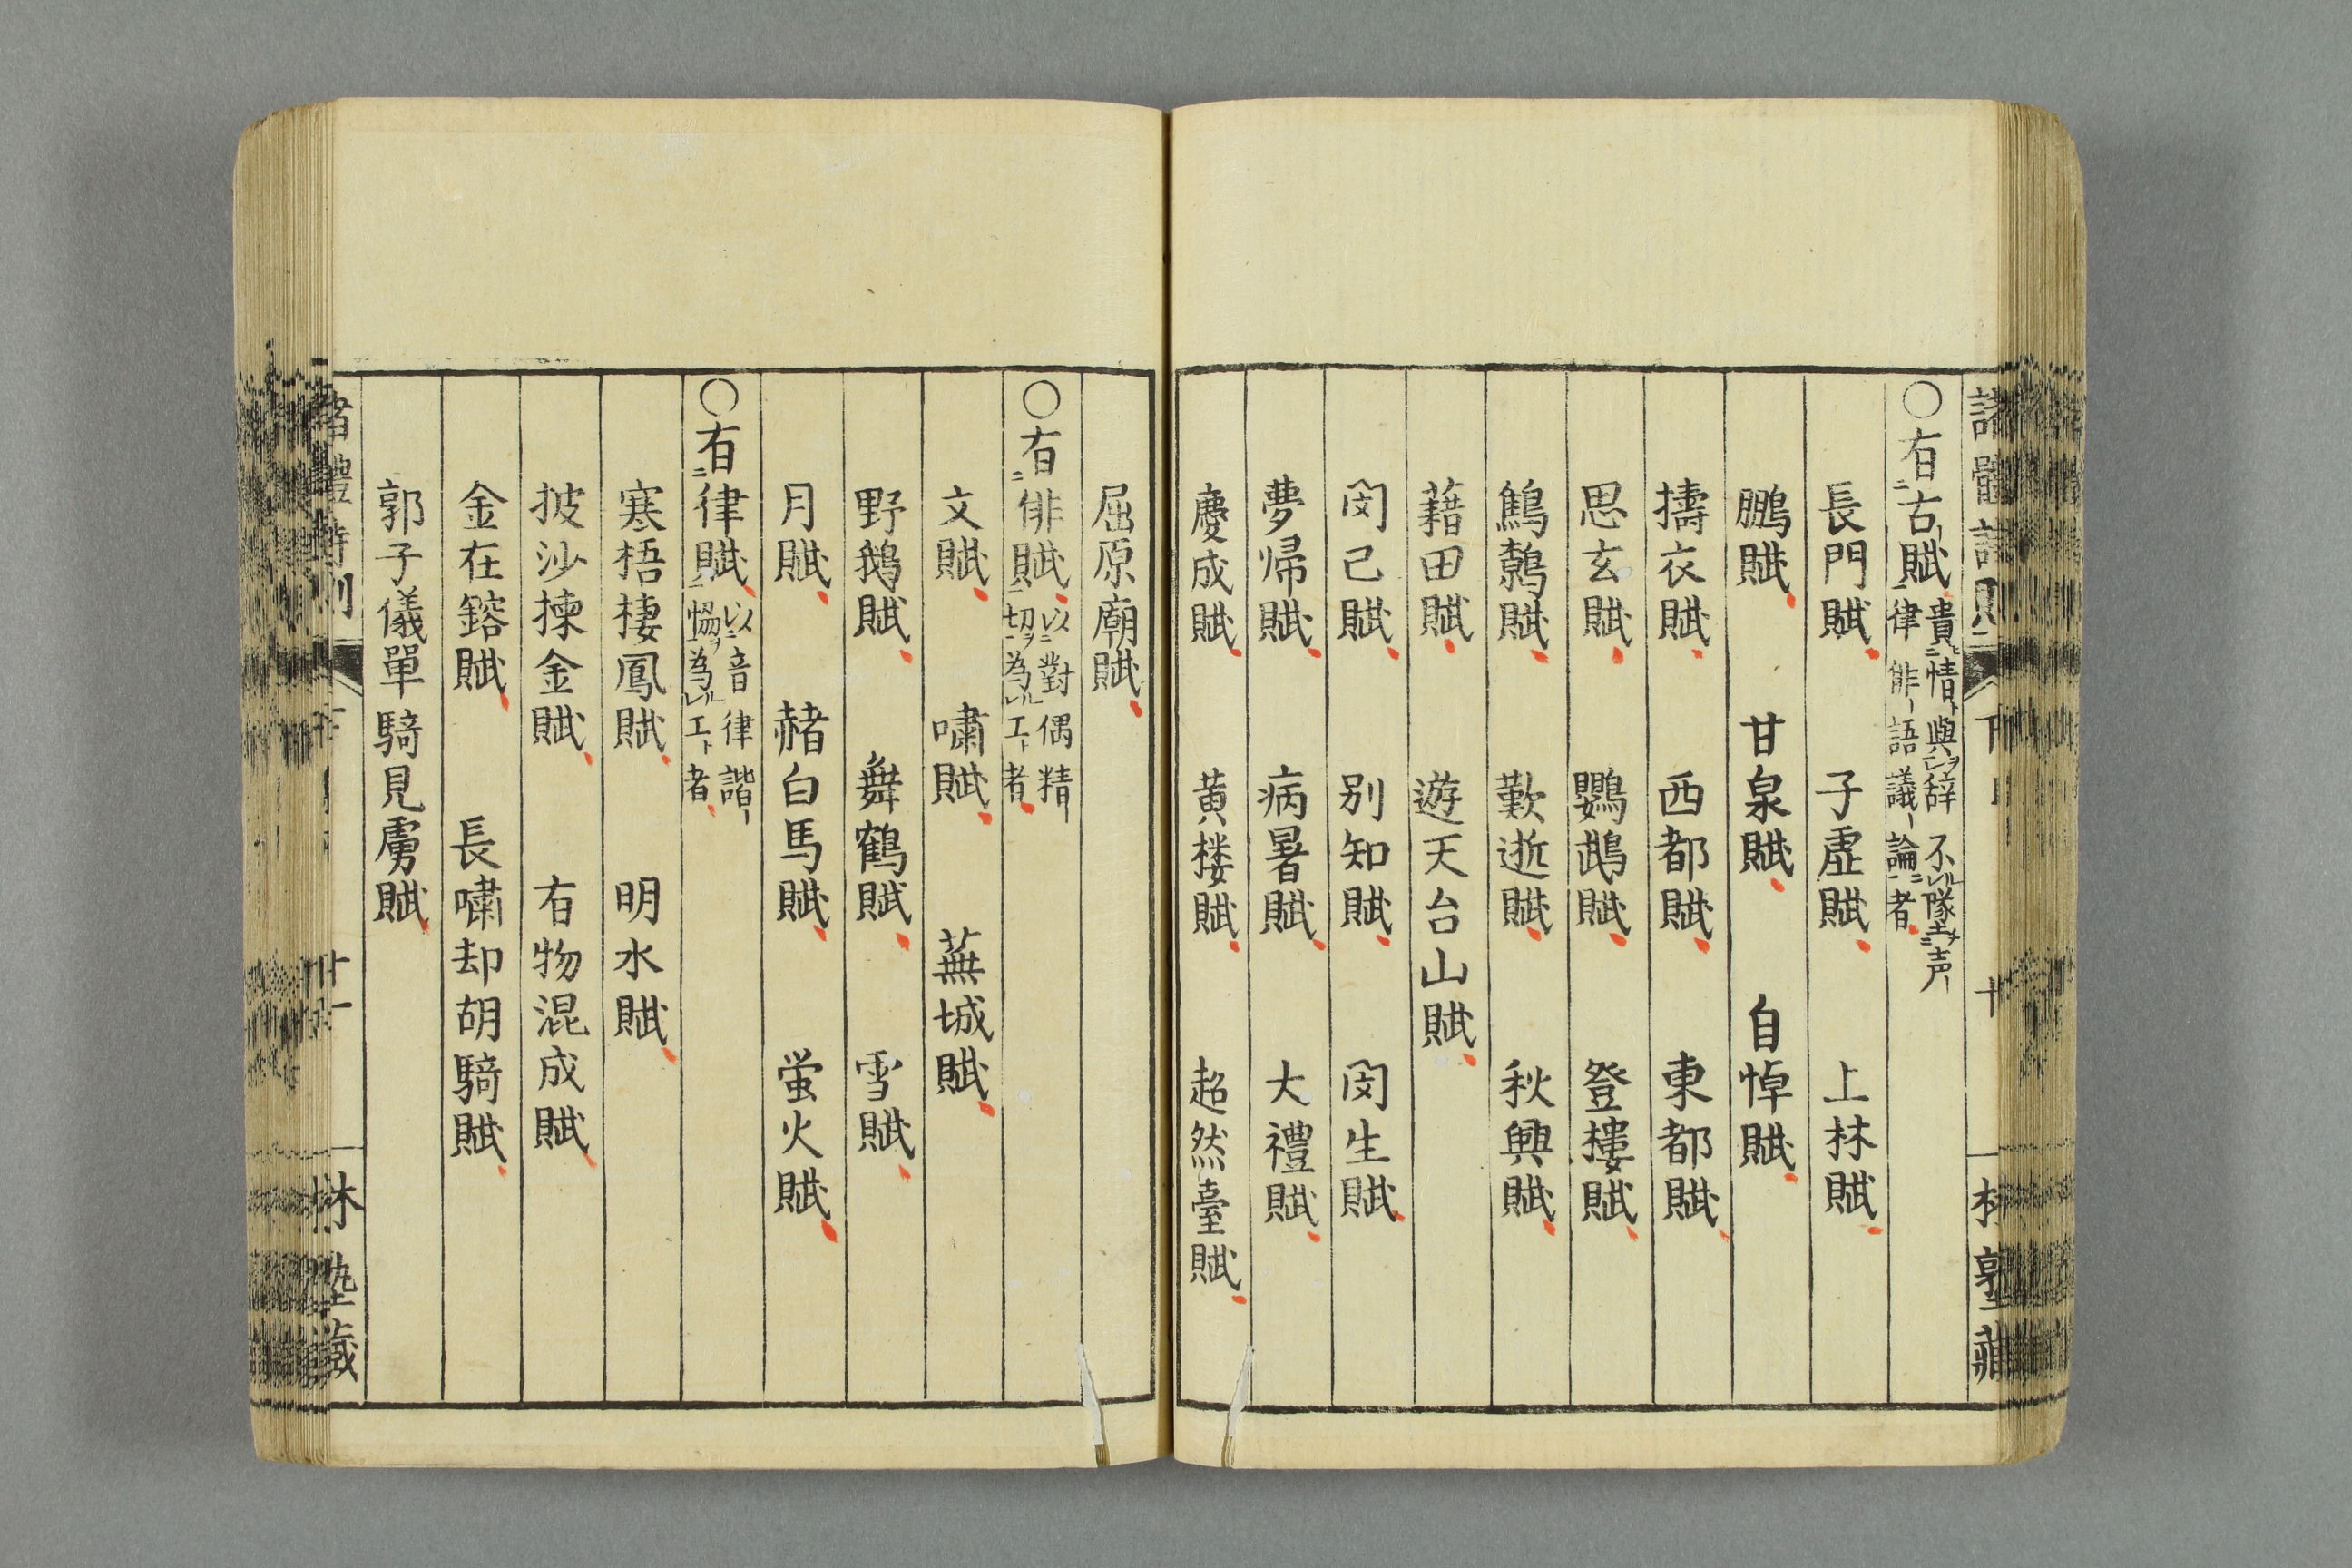 ○有ニ古賦一貴ニ情ト與ヲ辞不レル墜ニ声律俳ー語議ー論ニ者
長門賦 子虛賦 上林賦
鵬賦 甘泉賦 自悼賦
擣衣賦 西都賦 東都賦
思玄賦 鸚鵡賦 登樓賦
鷦鷯賦 歎逝賦 秋興賦
藉田賦 遊天台山賦
閔己賦 別知賦 閔生賦
夢帰賦 病暑賦 大禮賦
慶成賦 黄楼賦 超然臺賦
屈原廟賦
○有ニ俳賦一以ニ對偶精切ヲ為レル工ト者
文賦 嘯賦 蕪城賦
野鵝賦 舞鶴賦 雪賦
月賦 赭白馬賦 蛍火賦
○有ニ律賦一以ニ音律諧ー恊ヲ為レル工ト者
寒梧棲鳳賦 明水賦
披沙揀金賦 有物混成賦
金在鎔賦 長嘯却胡騎賦
郭子儀單騎見虜賦
十一
林塾蔵